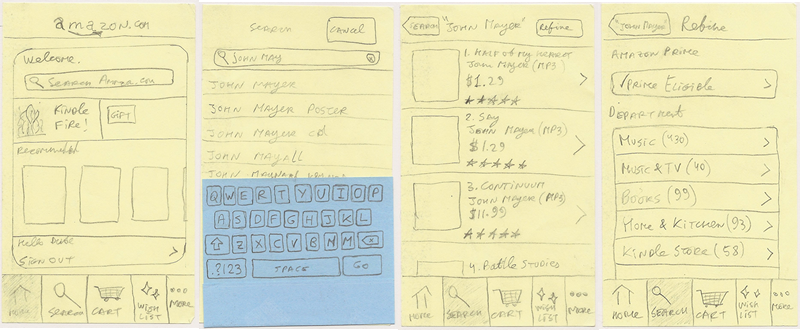 amazon.com
Welcome.
Search Amazon.com
Kindle
Fire!
GIFT
Recommended
Help Desk
Sign out
Home
Search
Cart
Wish
List
More
Search
Cancel
John May
John Mayer
John Mayer Poster
John Mayer CD
John Mayall
John
Q W E R T Y U I O P
A S D F G H J K L
Z X C V B N M
.?123
Space
Go
Search
"John Mayer"
Refine
1. Half of my heart
John Mayer (MP3)
$1.29
2. Say
John Mayer (MP3)
$1.29
3. Continuum
John Mayer (MP3)
$11.99
4. Battle Studies
Home
Search
Cart
Wish
List
More
"John Mayer"
Refine
Amazon Prime
Prime Eligible
Department
Music (430)
Music & TV (40)
Books (99)
Home & Kitchen (93)
Kindle Store (58)
Home
Search
Cart
Wish
List
More